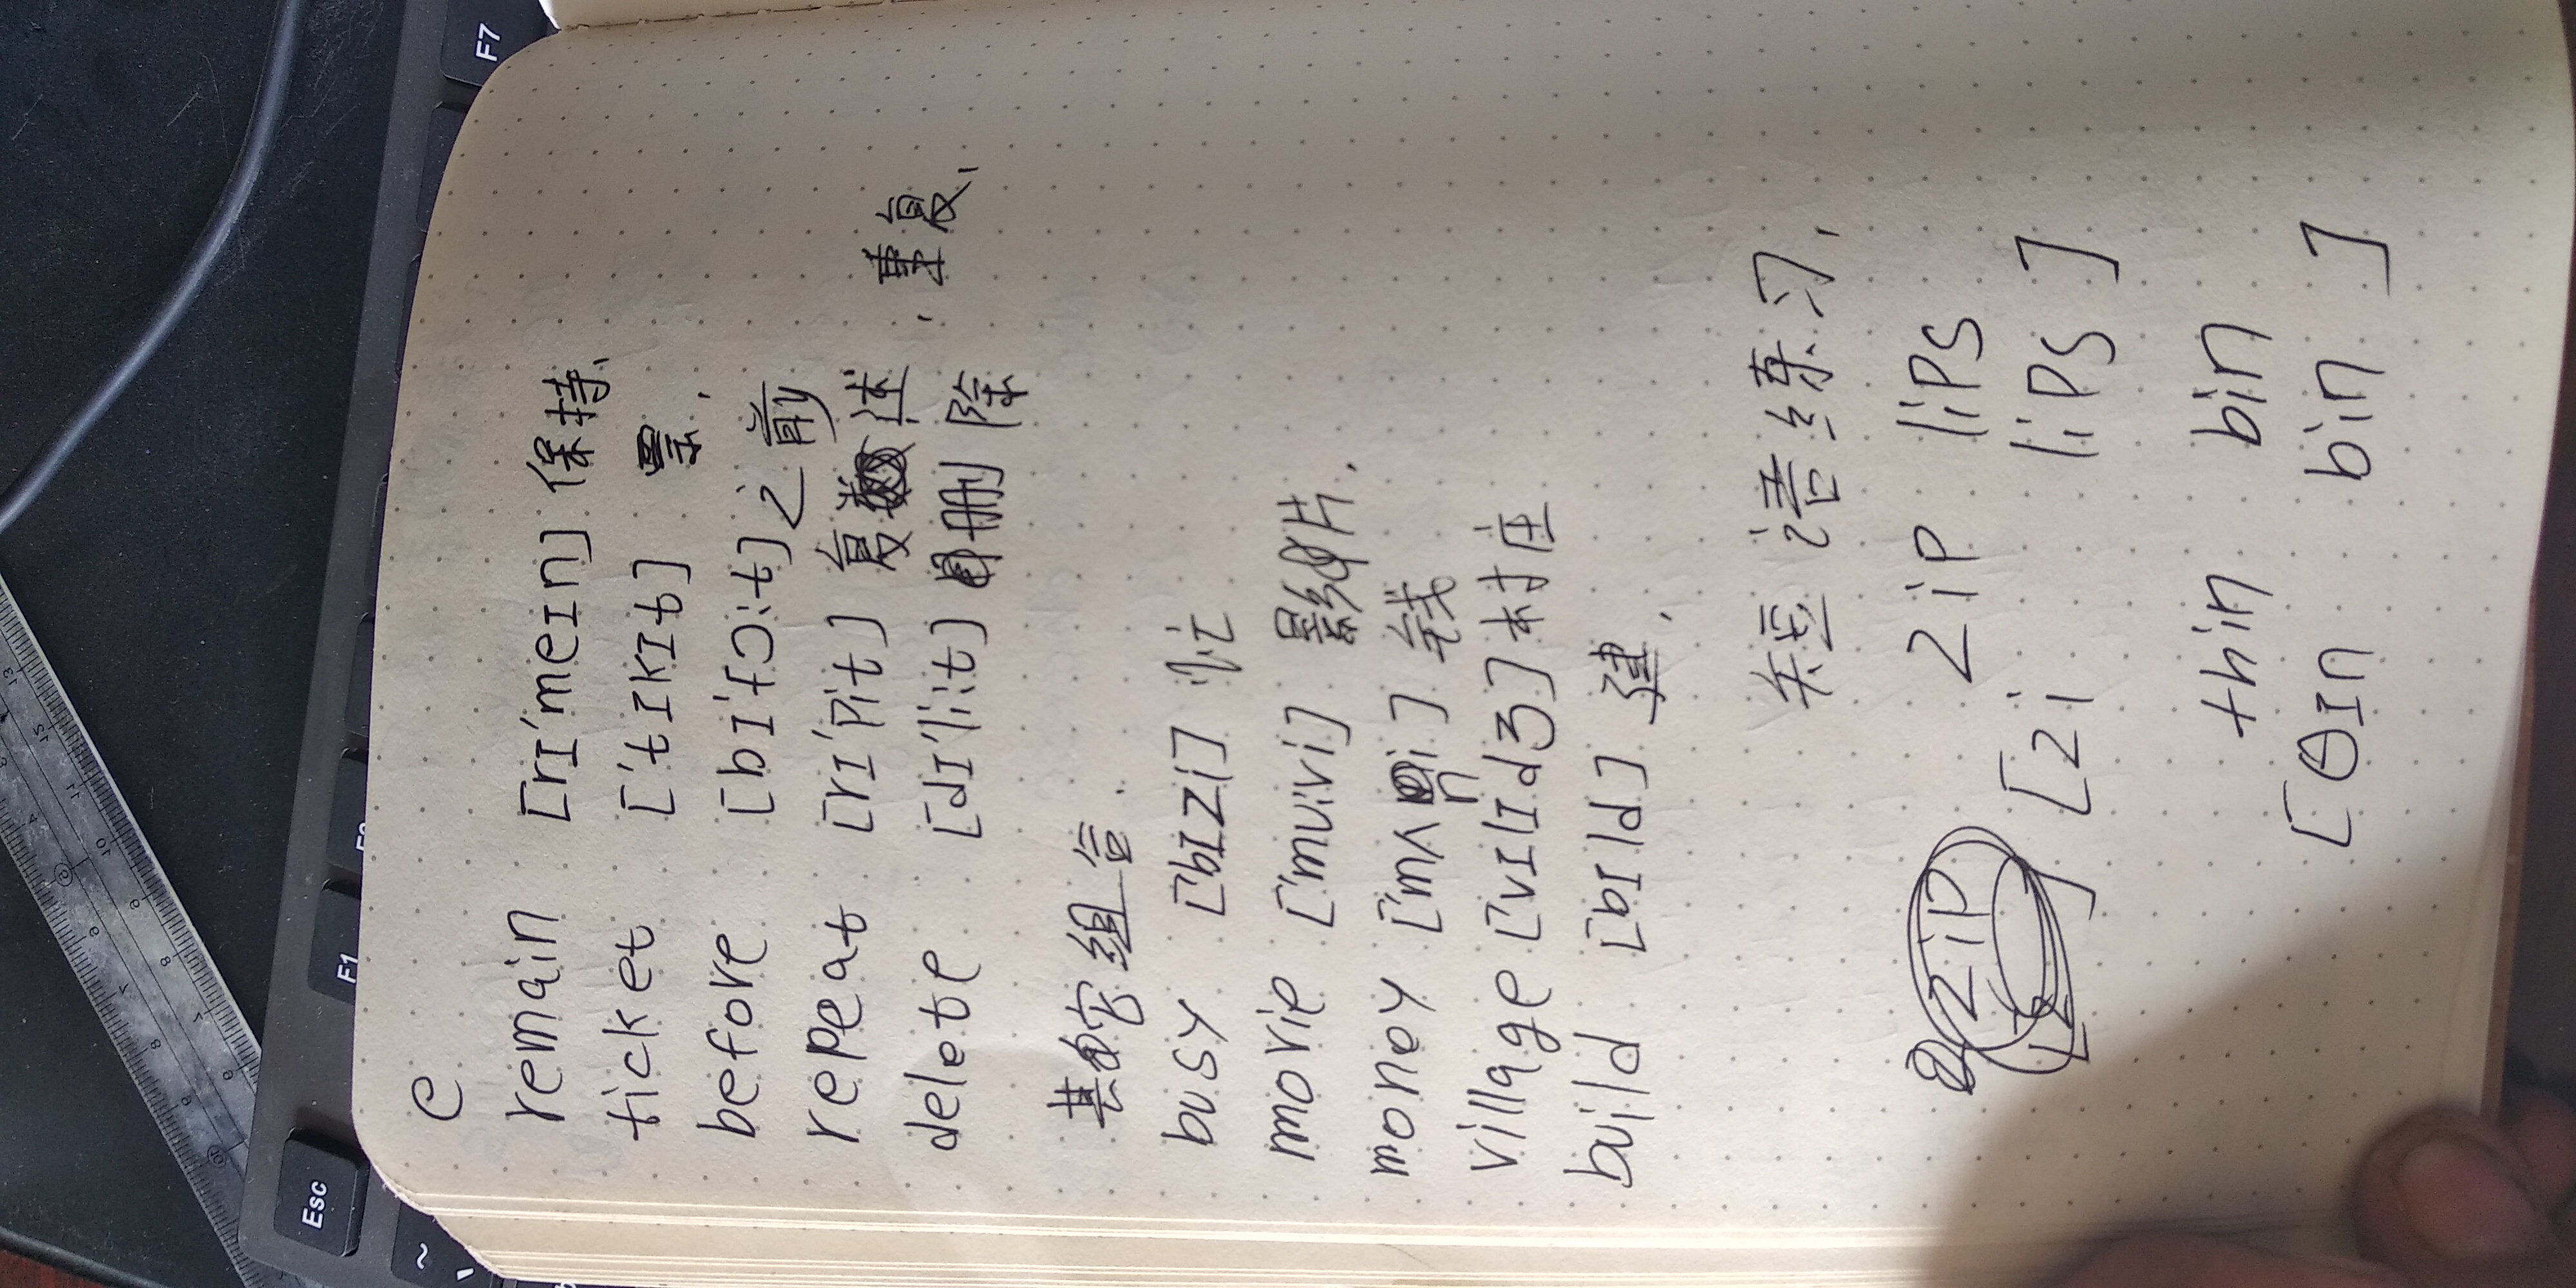 Esc
F1
F7
e
remain [rɪ'meɪn] 保持、
ticket ['tɪkɪt] 票,
before [bɪ'fɔ:t] 之前
repeat [rɪ'pit] 复述, 重复、
delete [dɪ'li:t] 删除
其它组合.
busy ['bɪzi] 忙
movie ['mu:vi] 影片.
money ['mʌni] 钱
village ['vɪlɪdʒ] 村庄
build [bɪld] 建,
短语练习,
zip zip lips
[z ] [zi lips]
thin bin
[θɪn bin]